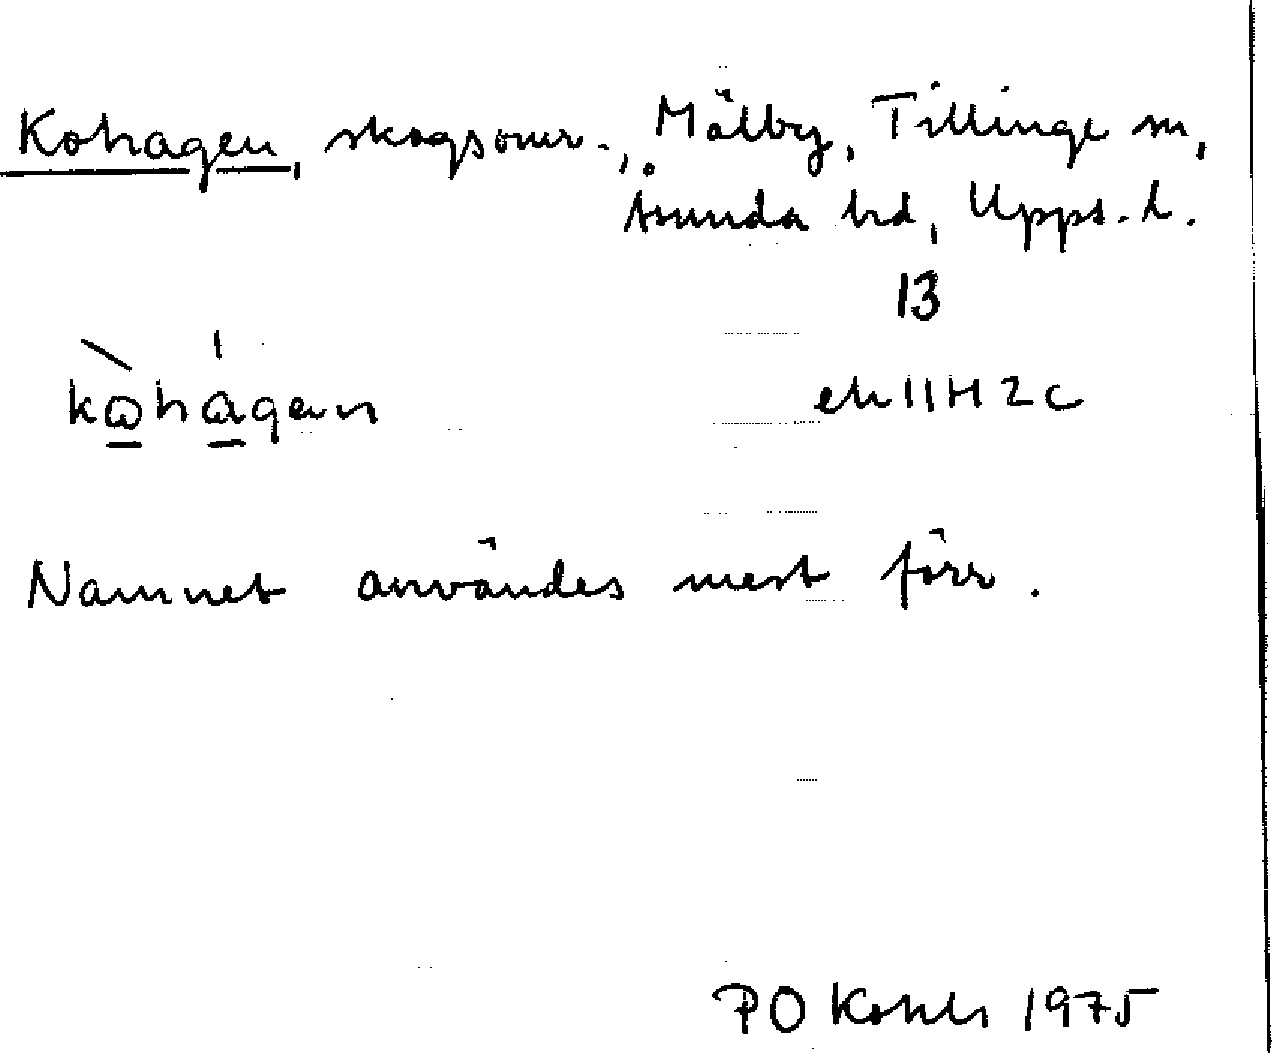 Kohagen, skogsomr., Mälby, Tillinge sn,
Åsunda hd, Upps. l.
13
kòhágen
ek 11H 2c
Namnet användes mest förr.
PO 1975